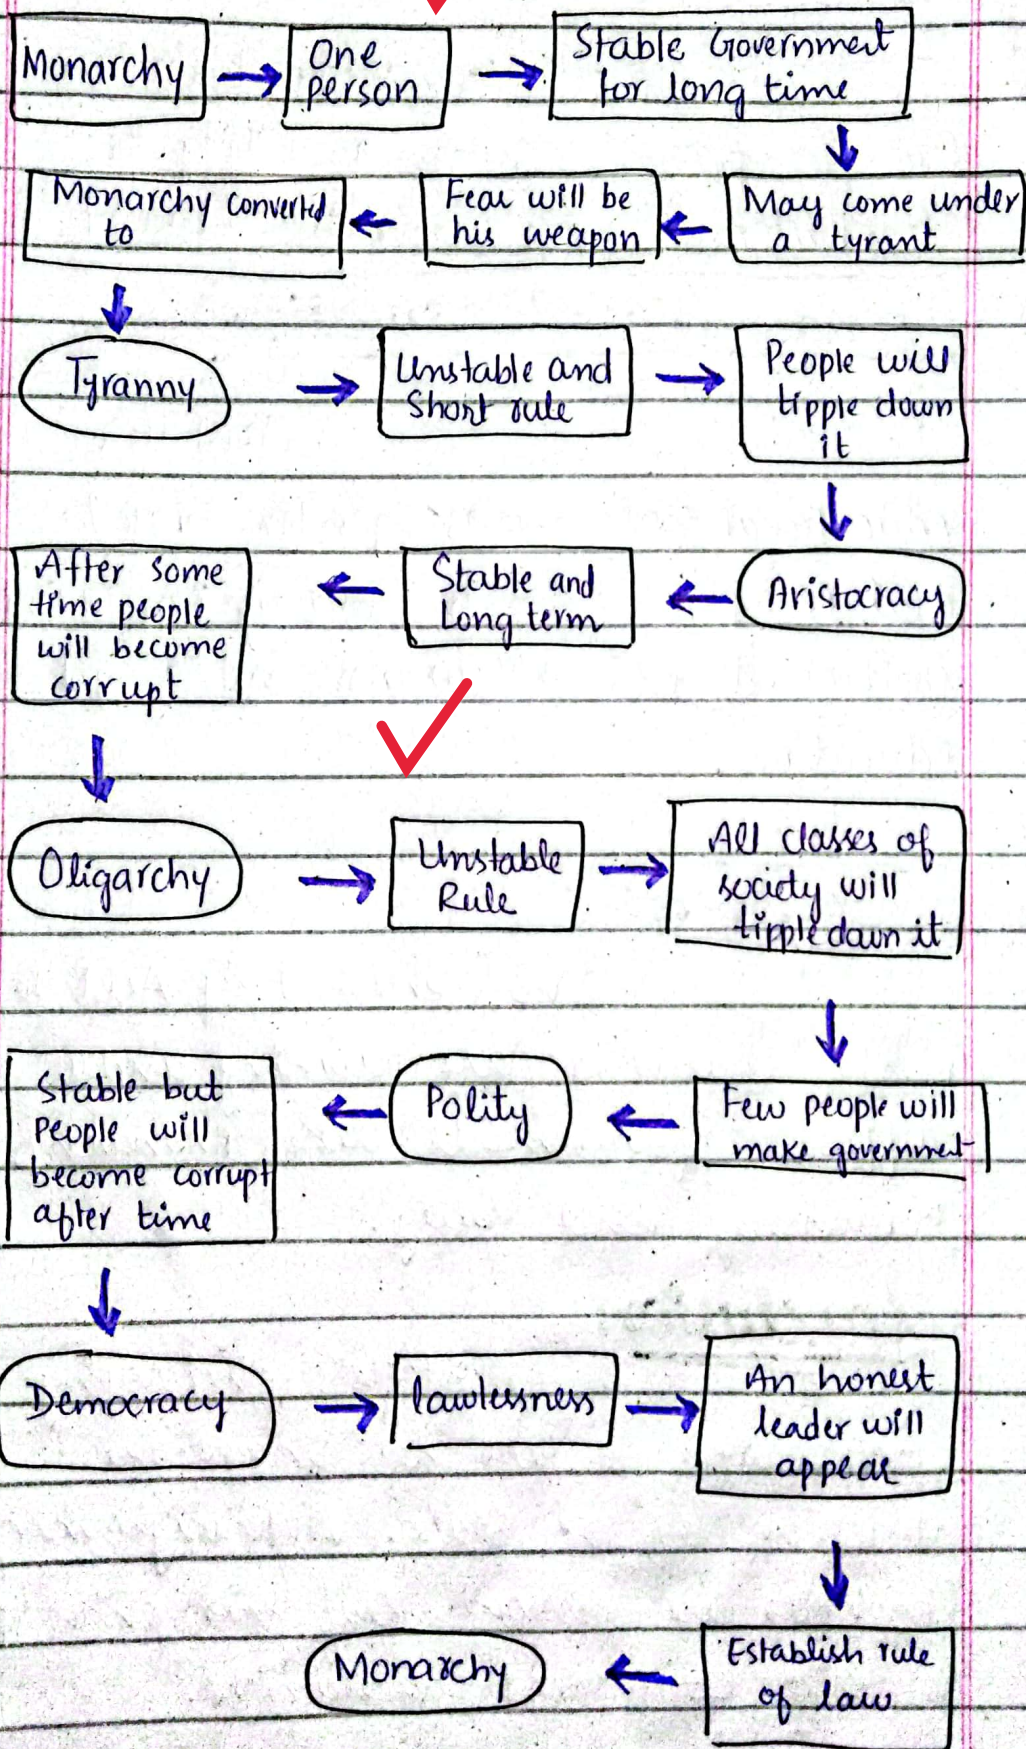 Monarchy
One
person
Stable Government
for long time
May come under
a tyrant
Fear will be
his weapon
Monarchy converted
to
Tyranny
Unstable and
Short rule
People will
tipple down
it
Aristocracy
Stable and
Long term
After some
time people
will become
corrupt
Oligarchy
Unstable
Rule
All classes of
society will
tipple down it
Few people will
make government
Polity
Stable but
People will
become corrupt
after time
Democracy
lawlessness
An honest
leader will
appear
Establish rule
of law
Monarchy